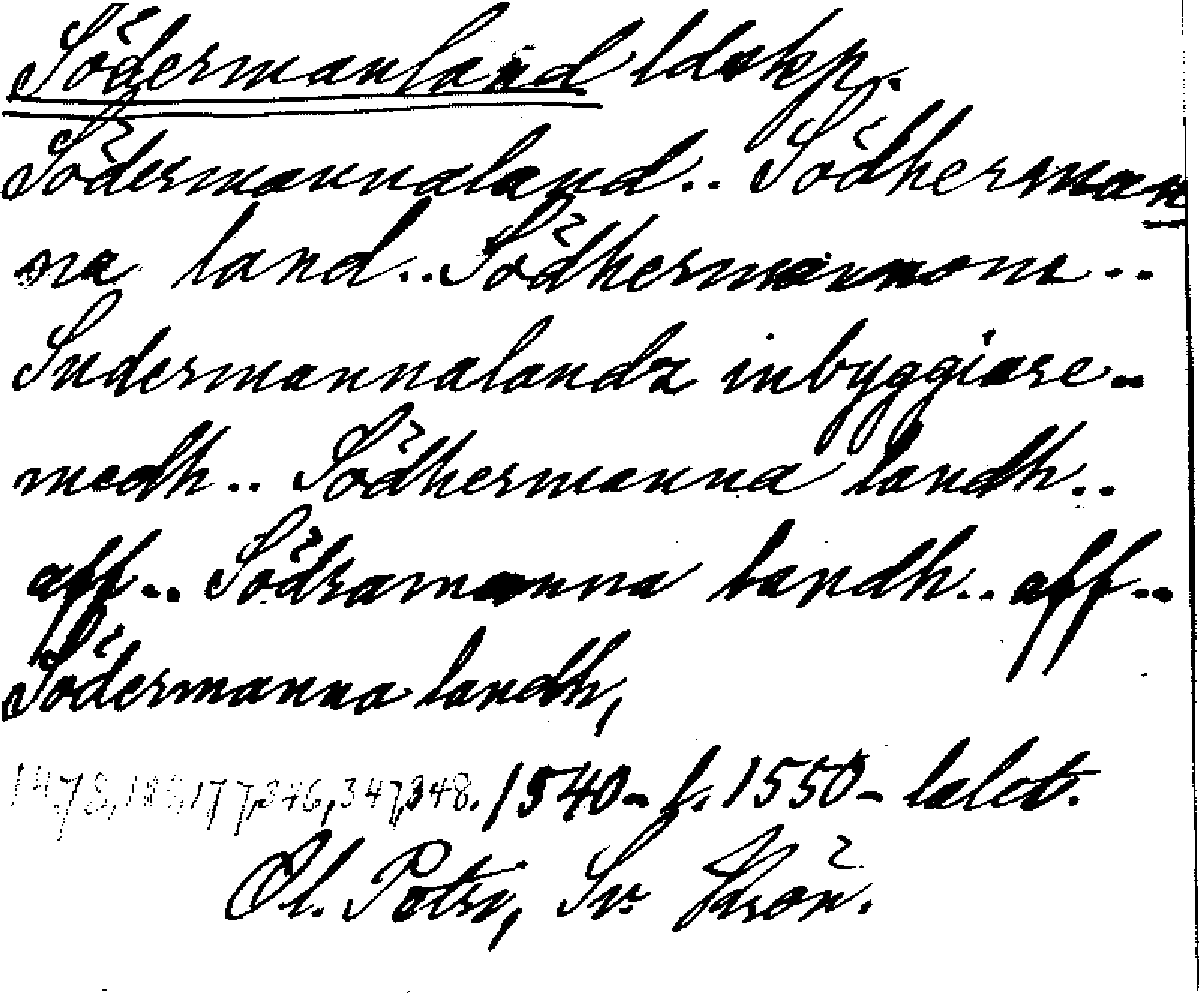 Södermanland ldskp.
Södermannaland.. Södherman
na land.. Södhermannom..
Sudermannalandz inbyggiare..
medh.. Södhermanna landh..
aff.. Södramanna landh.. aff..
Södermanna landh,
346, 347, 348. 1540- f. 1550- talet.
Ol. Petri, Sv. Krön.